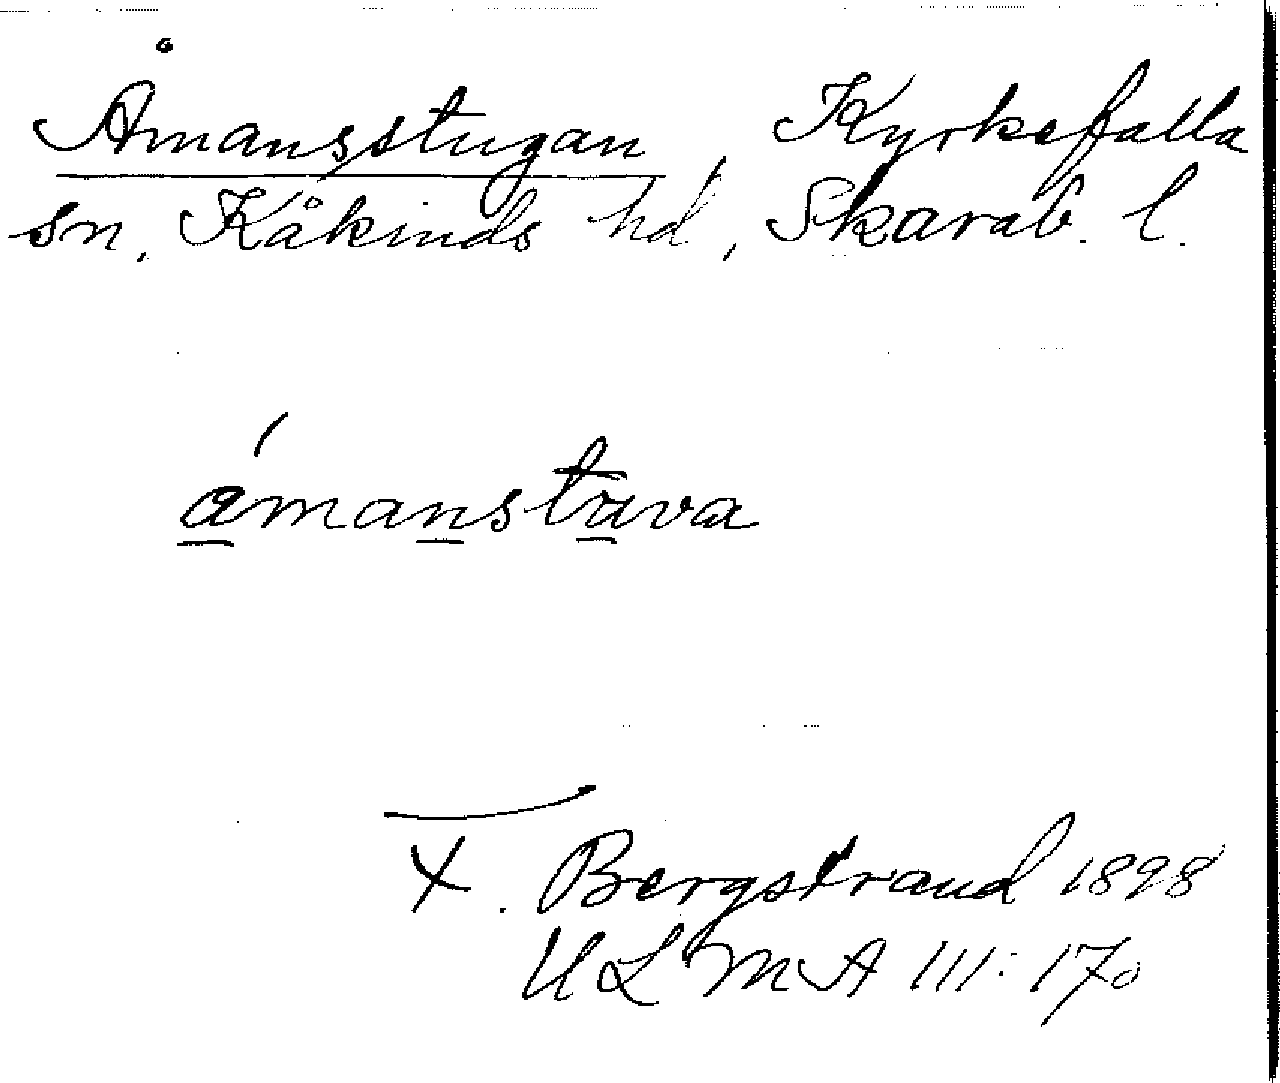 Åmansstugan, Kyrkefalla
sn, Kåkinds hd, Skarab. l.
ámanstuva
X. Bergstrand 1898
ULMA 111:170